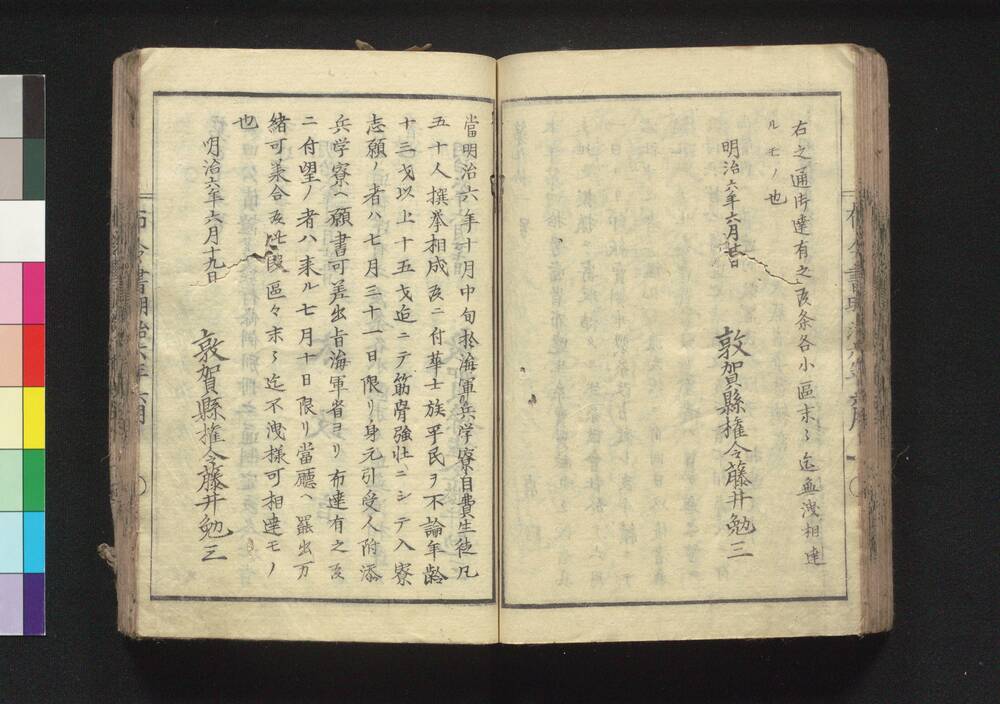 右之通御達有之候条各小區末々迄無洩相達
ルモノ也
明治六年六月廿日
敦賀縣権令藤井勉三
當明治六年十月中旬於海軍兵学寮自費生徒凡
五十人撰挙相成候ニ付華士族平民ヲ不論年齢
十三才以上十五才迄ニテ筋骨強壮ニシテ入寮
志願ノ者ハ七月三十一日限リ身元引受人附添
兵学寮ヘ願書可差出旨海軍省ヨリ布達有之候
ニ付望ノ者ハ来ル七月十日限リ當廳ヘ罷出万
緒可兼合候此段區々末々迄不洩様可相達モノ
也
明治六年六月十九日
敦賀縣権令藤井勉三
布令書明治六年六月